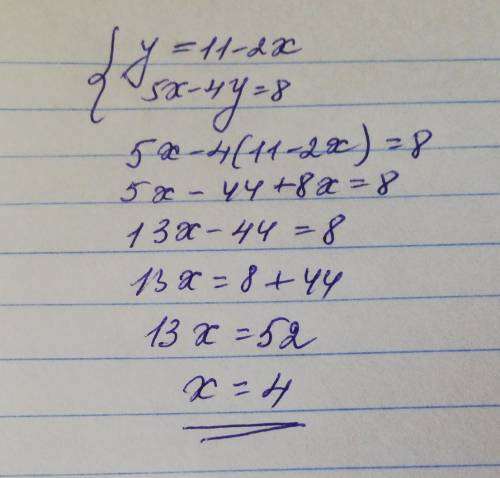 { y = 11-2x
5x-4y=8
5x-4(11-2x)=8
5x-44+8x=8
13x-44=8
13x=8+44
13x=52
x=4